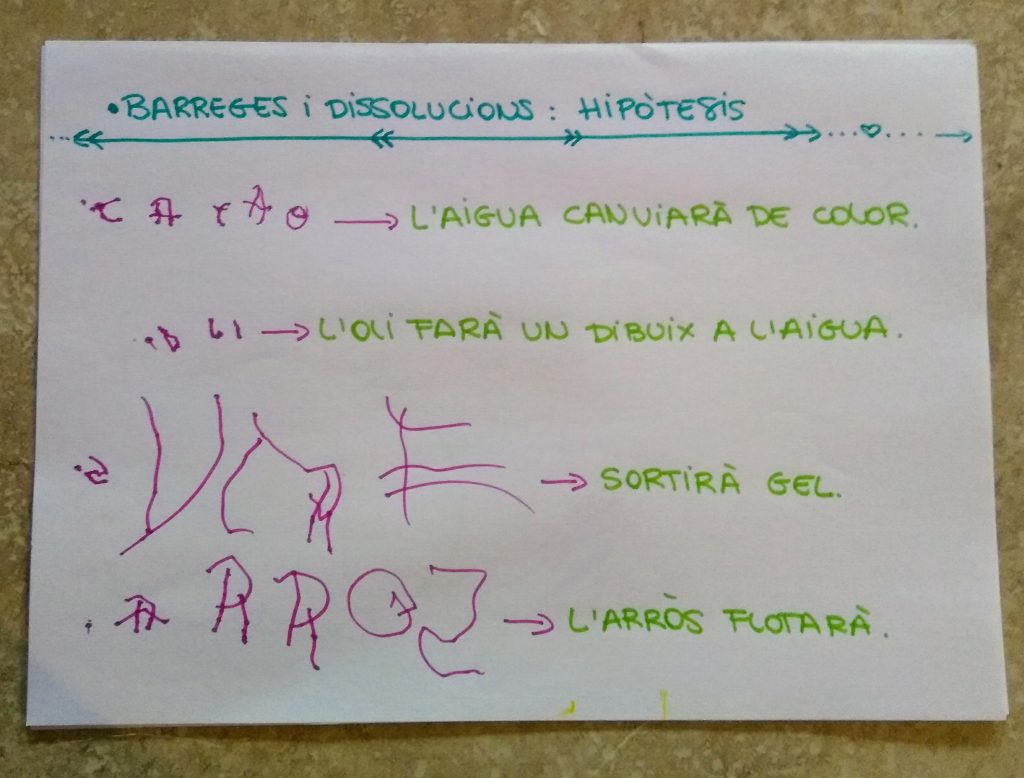 •BARREGES i DISSOLUCIONS : HIPÒTESIS
• C A C A O → L'AIGUA CANVIARÀ DE COLOR.
• O L I → L'OLI FARÀ UN DIBUIX A L'AIGUA.
→ SORTIRÀ GEL.
• A R R Ò S → L'ARRÒS FLOTARÀ.